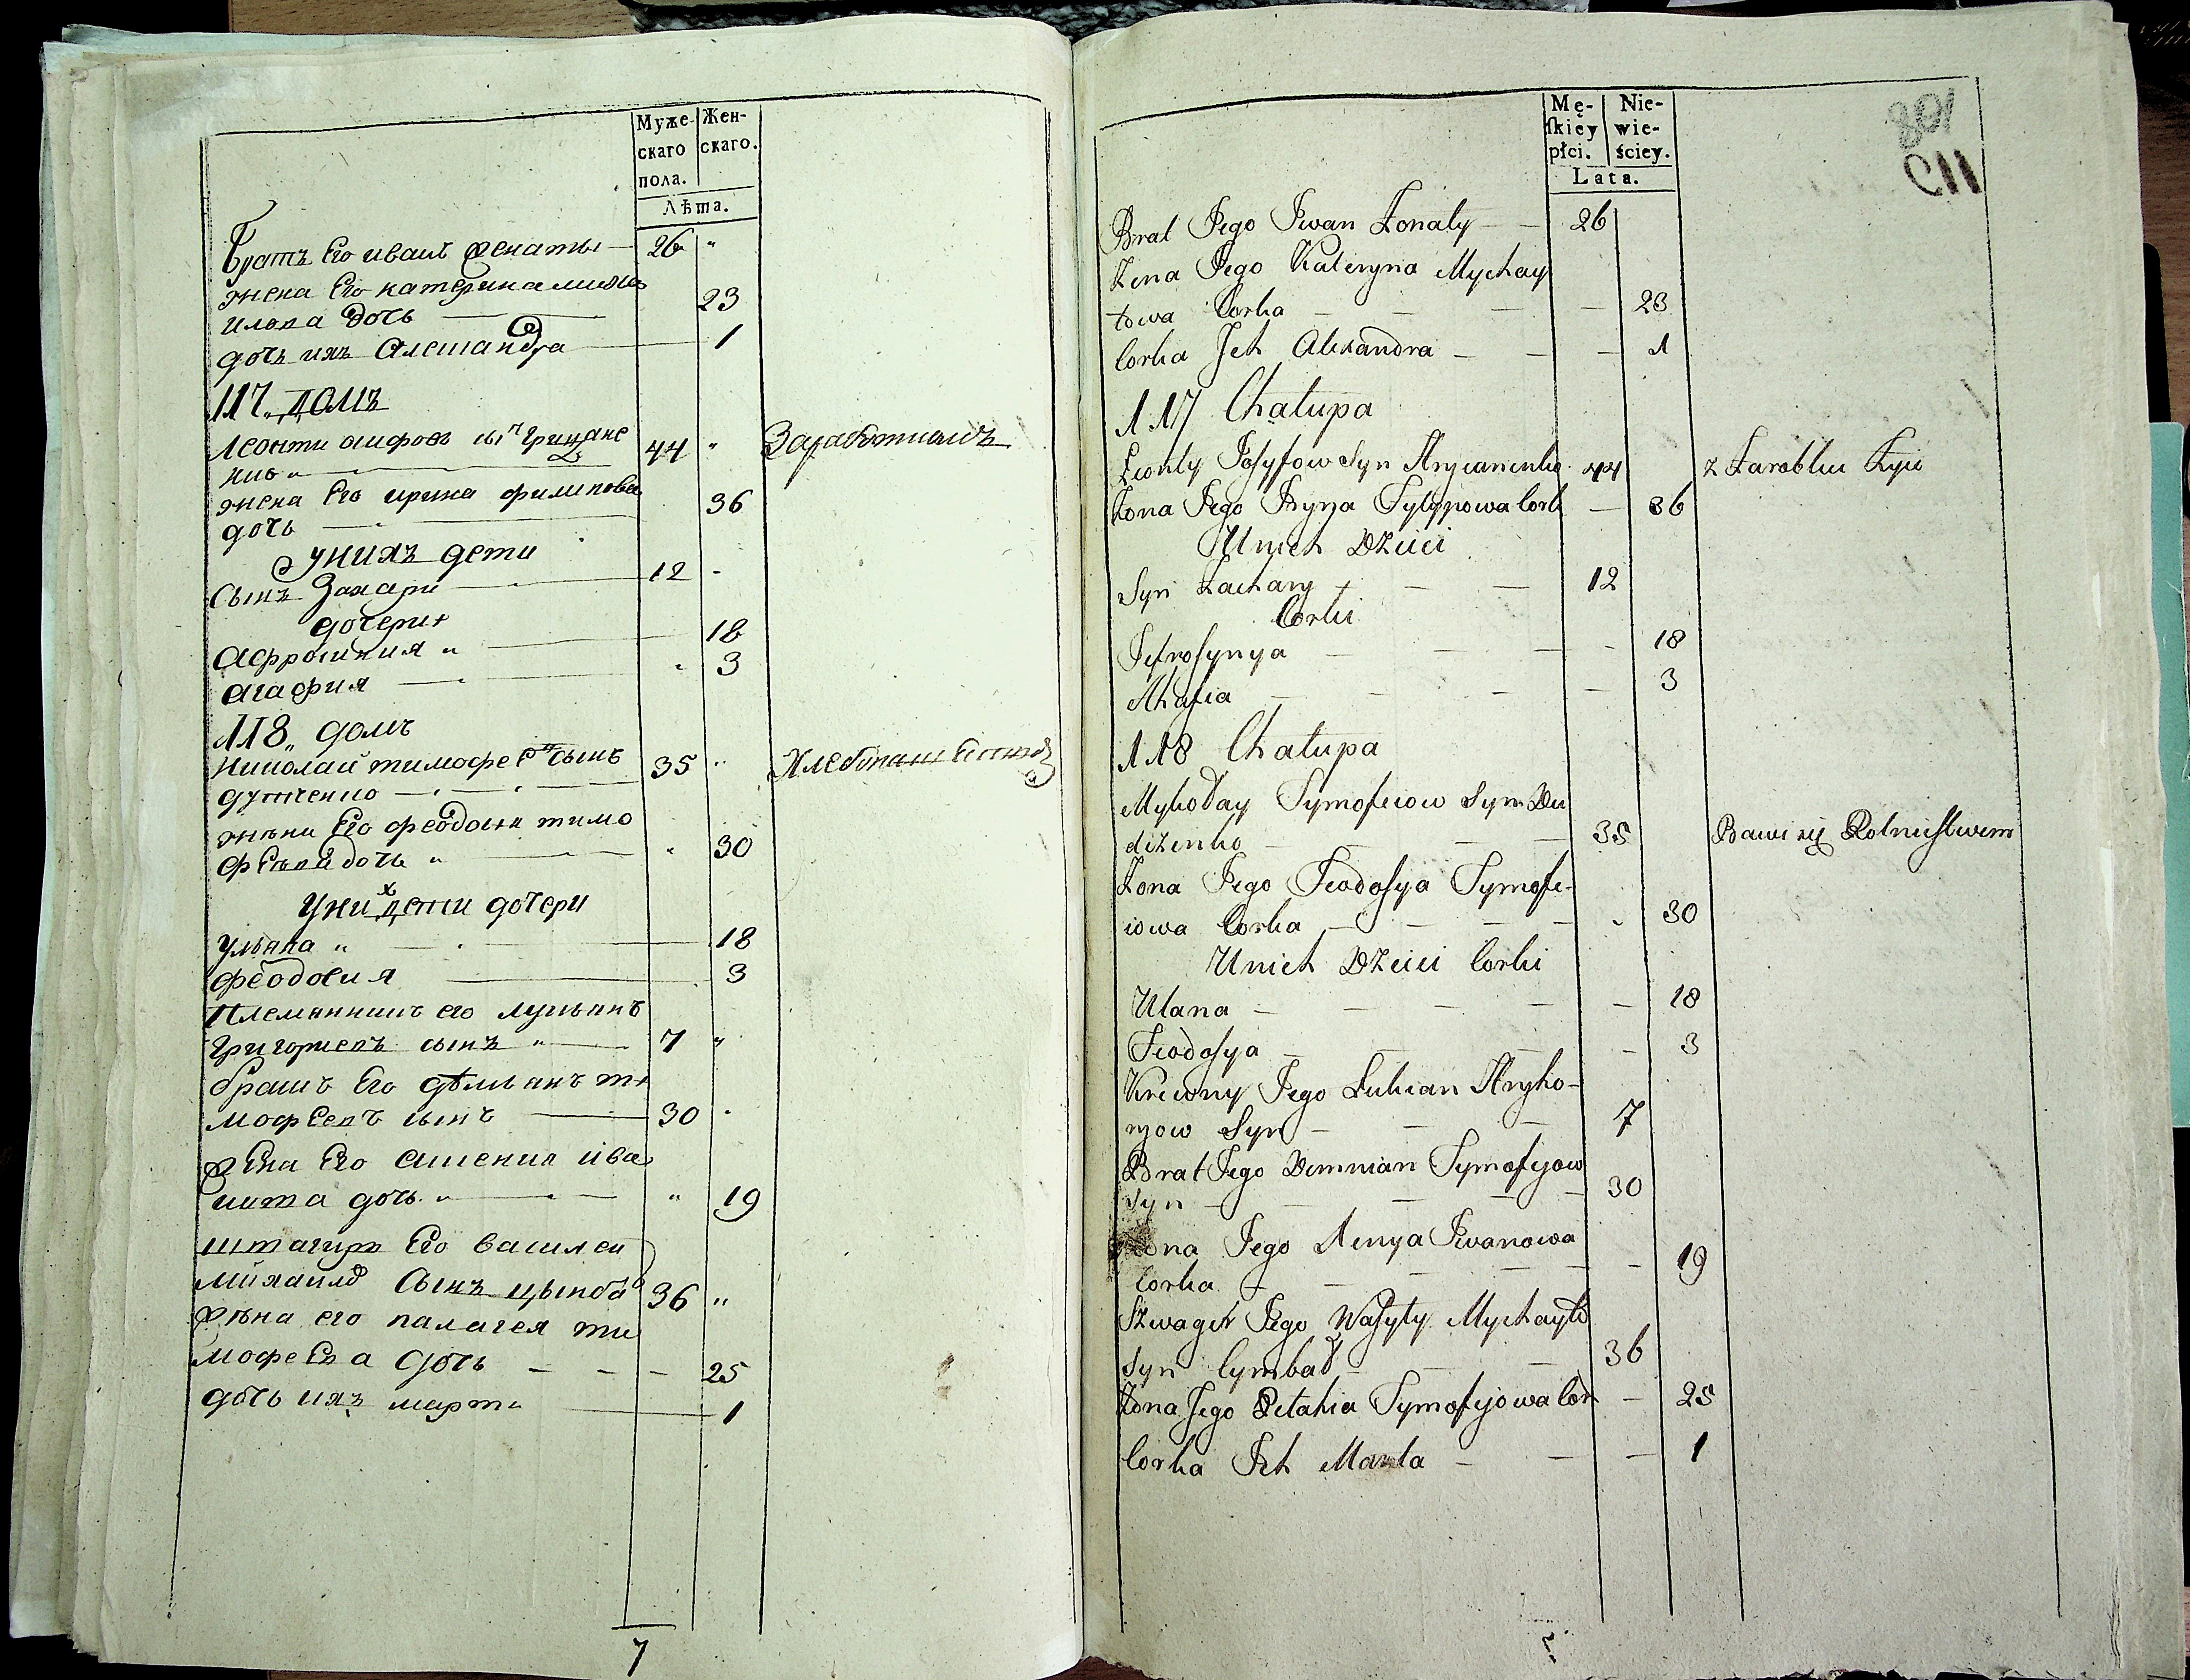 Муже-
скаго
пола.
Жен-
скаго.
Лѣта.
Братъ Его иванъ женаты 26 "
жена Его катерина миха
илова дочь 23
дочь ихъ Алешандра 1
117 „ домъ
Леонти аифовъ сын Грицане
нко " 44 " Заработкомъ
жена Его ирина филипова
дочь 36
у нихъ дети
сынъ Захари 12 -
дочери
Афросиния " 18
агафия " 3
118 „ домъ
Николай тимофеевъ сынъ 35 " Хлебопашествомъ
дутченко
жена Его феодосия тимо
феева дочь " " 30
у них дети дочери
ульяна " 18
феодосия 3
Племянникъ его лукьянъ
григориевъ сынъ " 7 "
братъ Его дѣмьянъ ти
мофеевъ сынъ 30 -
жена Его ксения ива
нова дочь " " 19
швагиръ Его василей
михаило сынъ цымбал 36 "
жена его палагея ти
мофеева дочь 25
дочь ихъ марта 1
7
Mę-
ſkiey
płci.
Nie-
wie-
ściey.
Lata.
801
СП
Brat Jego Jwan Żonaty 26
Żena Jego Kateryna Mychay
łowa Corka 23
Corka Jch Alexandra 1
117 Chałupa
Leonty Josyfow Syn Hrycanenko 44 z Zarobku Żyie
Żona Jego Jryna Fylypowa Cork 36
U nich Dzieci
Syn Zachary 12
Corki
Jefrosynya 18
Ahafia 3
118 Chałupa
Mykołay Tymofeiow Syn Du
diżenko 35 Bawi się Rolnictwem
Żona Jego Feodosya Tymofe-
iowa Corka 30
U nich Dzieci Corki
Ulana 18
Feodosya 3
Krewny Jego Łukian Hryho-
ryow Syn 7
Brat Jego Demnian Tymofyiow
Syn 30
Żona Jego Xenya Jwanowa
Corka 19
Szwagier Jego Wasyly Mychayło
Syn Cymbał 36
Żona Jego Pelahia Tymofyiowa Cor 25
Corka Jch Marta 1